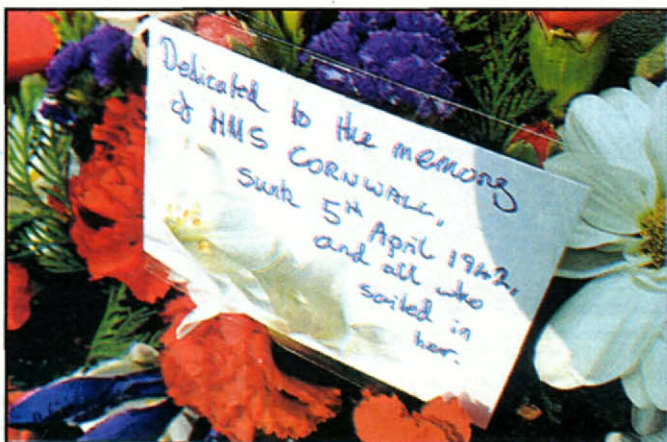 Dedicated to the memory
of HMS CORNWALL,
Sunk 5th April 1942,
and all who
sailed in
her.